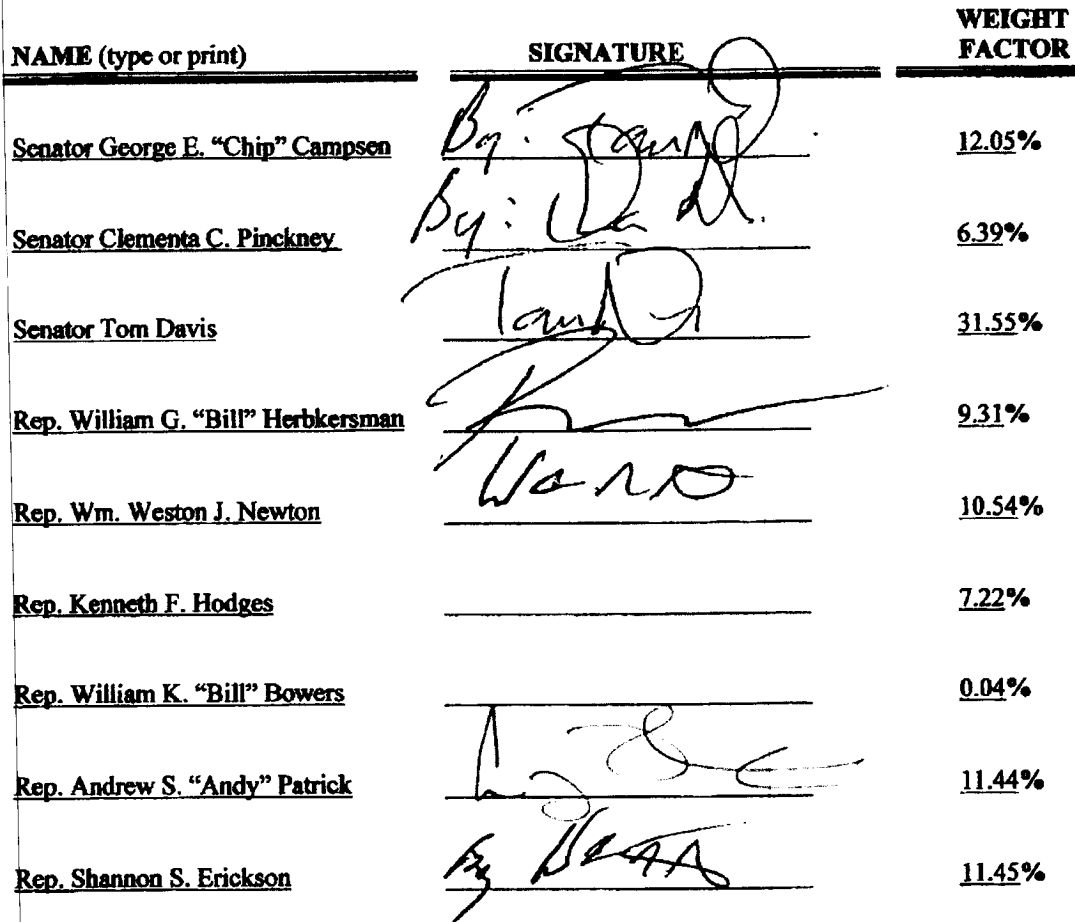 WEIGHT
NAME (type or print) SIGNATURE FACTOR
Senator George E. “Chip” Campsen By: 12.05%
Senator Clementa C. Pinckney By: 6.39%
Senator Tom Davis 31.55%
Rep. William G. “Bill” Herbkersman 9.31%
Rep. Wm. Weston J. Newton 10.54%
Rep. Kenneth F. Hodges 7.22%
Rep. William K. “Bill” Bowers 0.04%
Rep. Andrew S. “Andy” Patrick 11.44%
Rep. Shannon S. Erickson By 11.45%